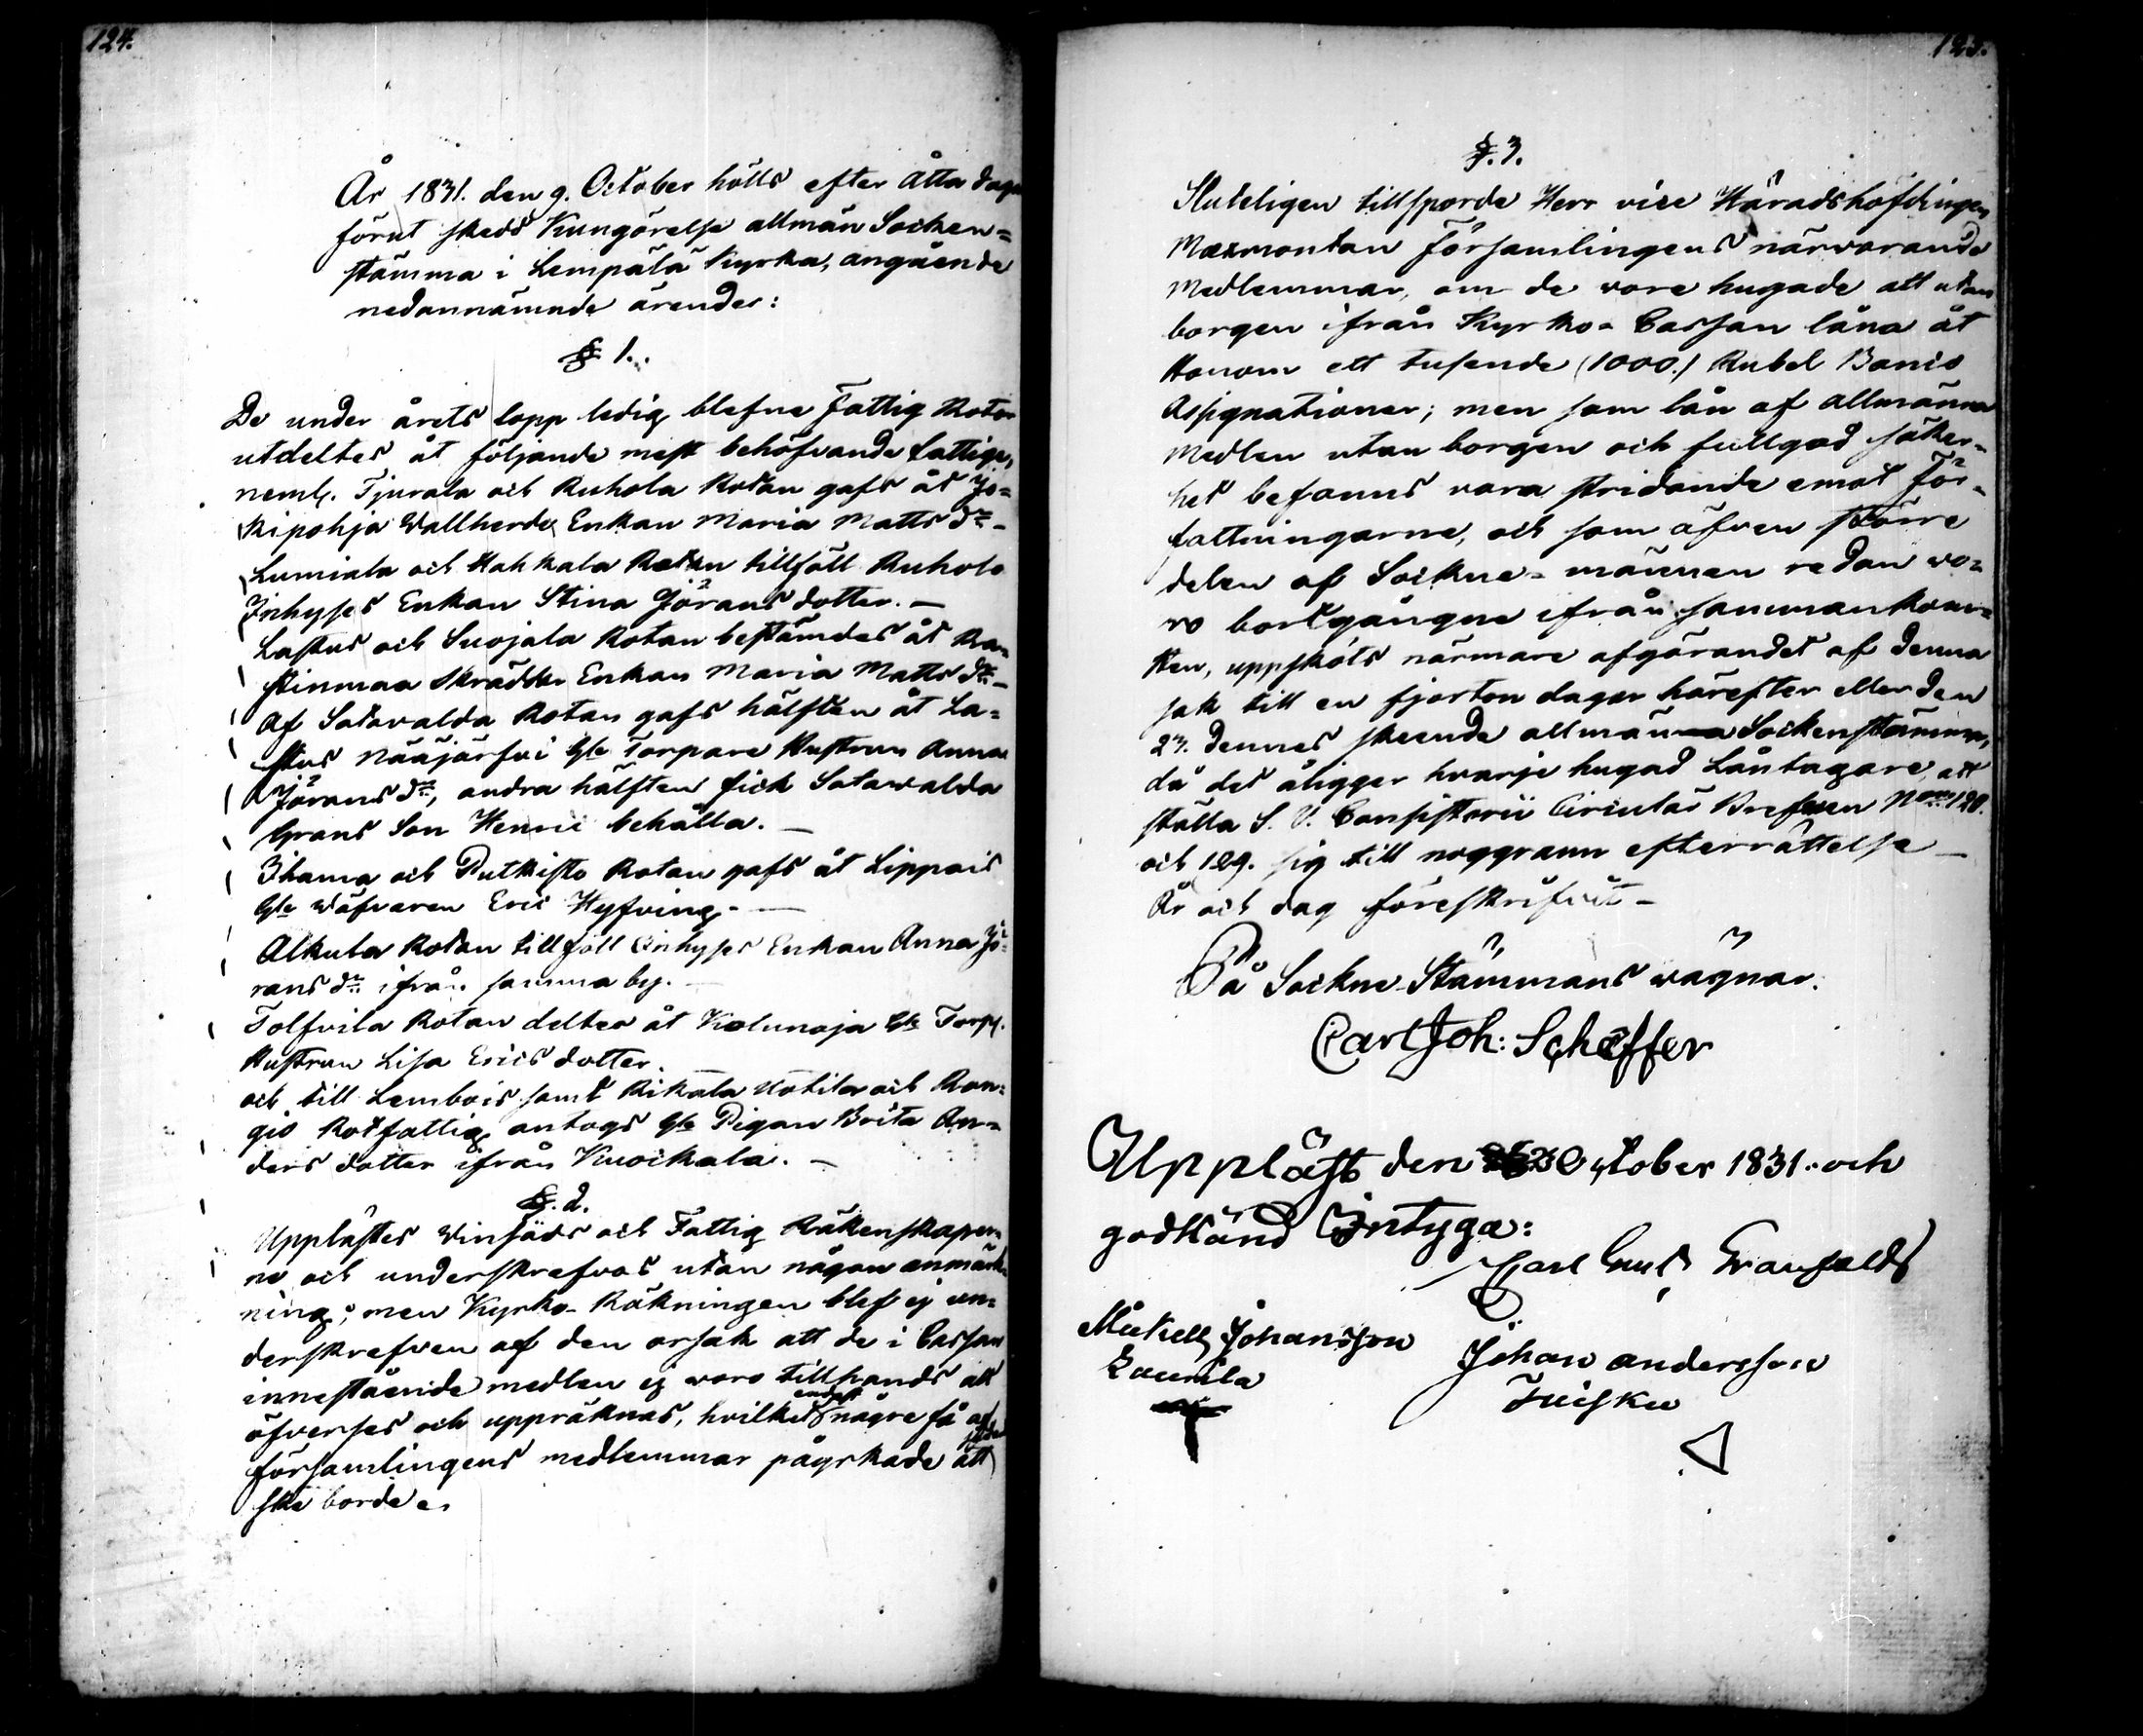 124.
År 1831. den 9. October hölls efter åtta dagar
förut skedd Kungörelse allmän Socken=
stämma i Lempälä Kyrka, angående
nedannämnde ärender:
§ 1.
De under årets lopp ledig blefne Fattig Rotar
utdeltes åt följande mest behöfvande fattige,
neml. Tjurala och Ruhola Rotan gafs åt Jo=
kipohja Wallherde Enkan Maria Matts dr. –
Lumiala och Hahkala Rotan tillföll Ruhola
Inhyses Enkan Stina Jöransdotter. –
Lastus och Suojala Rotan bestämdes åt Ra=
stinmaa Skräddar Enkan Maria Matts dr. –
Af Satavalda Rotan gafs hälften åt La=
stus Nääjärfvi Gle Torpare Hustrun Anna
Jörans dr., andra hälften fick Satawalda
Grans Son Henric behålla. –
Ihama och Putkisto Rotan gafs åt Lippois
Gle Wäfvaren Eric Hyfving. –
Alkula Rotan tillföll Inhyses Enkan Anna Jö=
rans dr. ifrån samma by. –
Tolfvila Rotan deltes åt Kolunoja Gle Torp.
Hustrun Lisa Ericsdotter. –
och till Lembois samt Rikala Uotila och Ron=
giö Rotfattig antogs Gle Pigan Brita An=
ders dotter ifrån Kuoikala. –
§. 2.
Upplästes Winsäds och Fattig Räkenskaper=
na och underskrefvos utan någon anmärk=
ning; men Kyrko-Räkningen blef ej un=
derskrefven af den orsak att de i Cassan
innestående medlen ej woro tillhands att
öfverses och uppräknas, hvilket endast några få af
församlingens medlemmar påyrkade att
ske borde.
125.
§. 3.
Sluteligen tillsporde Herr vice Häradshöfdingen
Maxmontan Församlingens närvarande
Medlemmar, om de vore hugade att utan
borgen ifrån Kyrko-Cassan låna åt
Honom ett tusende (1000.) Rubel Banco
Assignationer; men som lån af allmänna
Medlen utan borgen och fullgod säker=
het befanns vara stridande emot För=
fattningarne, och som äfven större
delen af Sockne-männen redan wo=
ro bortgångne ifrån sammankom=
sten, uppsköts närmare afgörandet af denna
sak till en fjorton dagar härefter eller den
23. dennes skeende allmänna Sockenstämma,
då det åligger hvarje hugad Låntagare att
ställa S. V. Consistorii Circulär Brefven No 128.
och 129. sig till noggrann efterrättelse –
År och dag föreskrifvit –
På Sockne-Stämmans wägnar.
Carl Joh: Scheffer
Uppläst den 23 October 1831. och
godkänd Intyga:
Carl
Mickell Johansson
Johan andersson